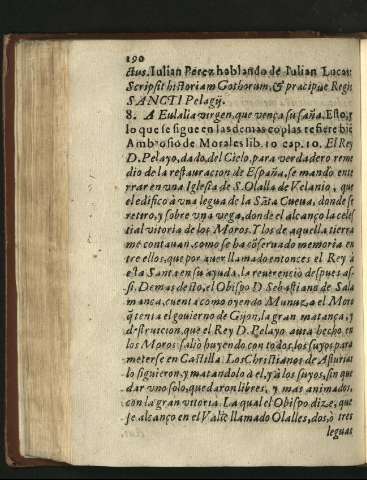 190
ctus. Iulian Perez hablando de Iulian Lucas
Scripsit historiam Gothorum, & præcipuè Regis
SANCTI Pelagij.
8. A Eulalia virgen, que vença su saña. Esto, y
lo que se sigue en las demas coplas refiere biē
Ambrosio de Morales lib. 10 cap. 10. El Rey
D. Pelayo, dado, del Cielo, para verdadero reme
dio de la restauracion de España, se mandò ente
rrar en una Iglesia de S. Olalla de Velanio, que
el edificò à una legua de la Sāta Cueua, donde se
retiro, y sobre una vega, donde el alcanço la celes
tial vitoria de los Moros. Y los de aquella tierra
me contauan, como se ha cōseruado memoria en
tre ellos, que por auer llamado entonces el Rey à
esta Santa en su ayuda, la reuerenciò despues as-
si. Demas desto, el Obispo D. Sebastiano de Sala
manca, cuenta como oyendo Munuza el Moro
q̄ tenia el gouierno de Gijon, la gran matança, y
destruicion, que el Rey D. Pelayo auia hecho en
los Moros, saliò huyendo con todos los suyos para
meterse en Castilla. Los Christianos de Asturias
lo siguieron, y matandolo à el, y à los suyos, sin que
dar uno solo, quedaron libres, y mas animados,
con la gran vitoria. La qual el Obispo dize, que
se alcanço en el Valle llamado Olalles, dos, ò tres
leguas